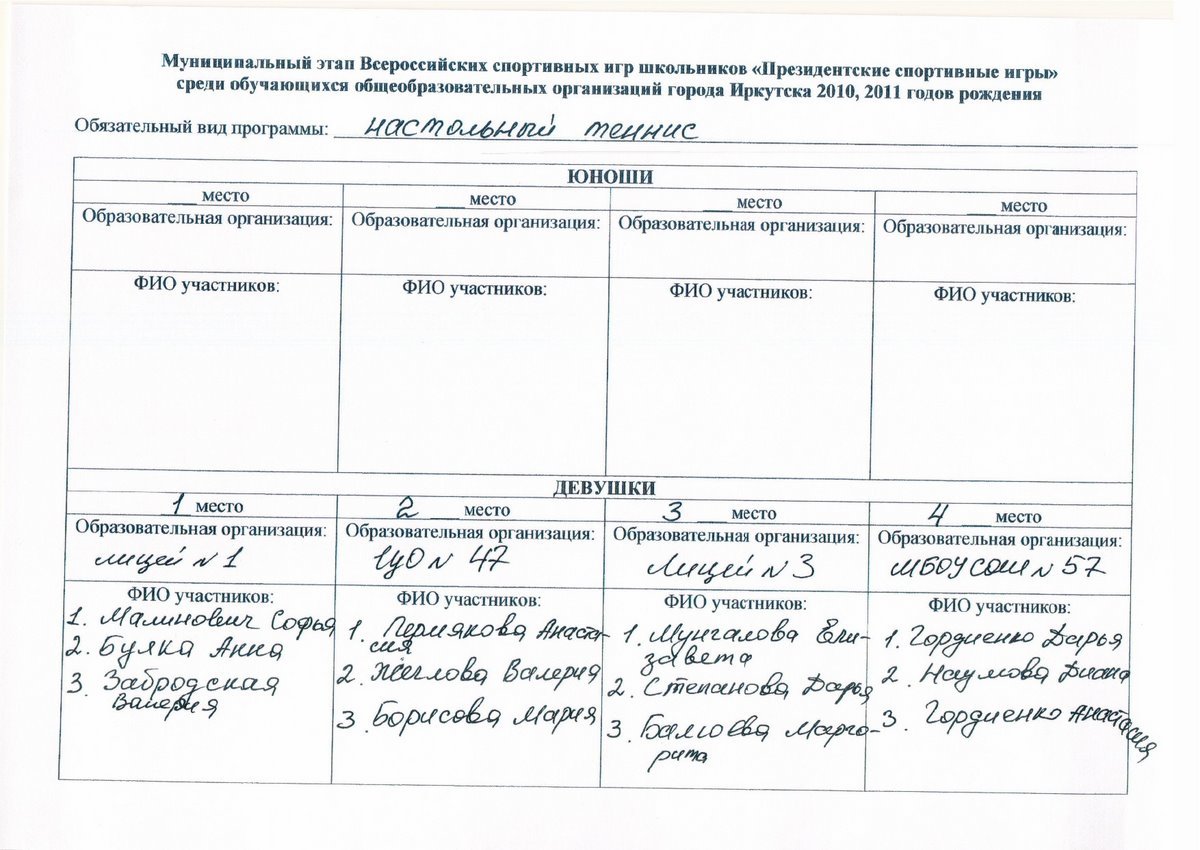 Муниципальный этап Всероссийских спортивных игр школьников «Президентские спортивные игры»
среди обучающихся общеобразовательных организаций города Иркутска 2010, 2011 годов рождения
Обязательный вид программы: настольный теннис
ЮНОШИ
___ место ___ место ___ место ___ место
Образовательная организация: Образовательная организация: Образовательная организация: Образовательная организация:
ФИО участников: ФИО участников: ФИО участников: ФИО участников:
ДЕВУШКИ
1 место 2 место 3 место 4 место
Образовательная организация: Образовательная организация: Образовательная организация: Образовательная организация:
лицей N 1
ЦО N 47
Лицей N 3
МБОУ СОШ N 57
ФИО участников:
1. Малинович Софья
2. Булка Анна
3. Забродская
Валерия
ФИО участников:
1. Пермякова Анаста-
сия
2. Жеглова Валерия
3. Борисова Мария
ФИО участников:
1. Мунгалова Ели-
завета
2. Степанова Дарья
3. Марго-
рита
ФИО участников:
1. Гордиенко Дарья
2. Наумова Диана
3. Гордиенко Анастасия